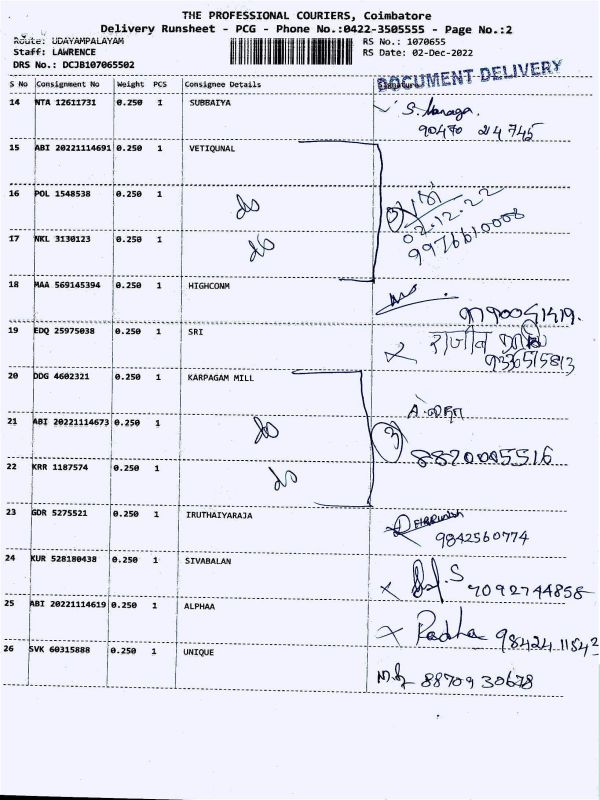 THE PROFESSIONAL COURIERS, Coimbatore
Delivery Runsheet - PCG - Phone No.:0422-3505555 - Page No.:2
Route: UDAYAMPALAYAM RS No.: 1070655
Staff: LAWRENCE RS Date: 02-Dec-2022
DRS No.: DCJB107065502
DOCUMENT DELIVERY
S No Consignment No Weight PCS Consignee Details
14 NTA 12611731 0.250 1 SUBBAIYA S. Managa.
90470 24745
15 ABI 20221114691 0.250 1 VETIQUNAL
16 POL 1548538 0.250 1 do 3
02.12.22
17 NKL 3130123 0.250 1 do 9976610008
18 MAA 569145394 0.250 1 HIGHCONM
9790051419.
19 EDQ 25975038 0.250 1 SRI राजीव
9336515813
20 DDG 4602321 0.250 1 KARPAGAM MILL
21 ABI 20221114673 0.250 1 do 3
8820005516
22 KRR 1187574 0.250 1 do
23 GDR 5275521 0.250 1 IRUTHAIYARAJA
9842560774
24 KUR 528180438 0.250 1 SIVABALAN
7092744858
25 ABI 20221114619 0.250 1 ALPHAA Radha 98424 11542
26 SVK 60315888 0.250 1 UNIQUE 8870930678